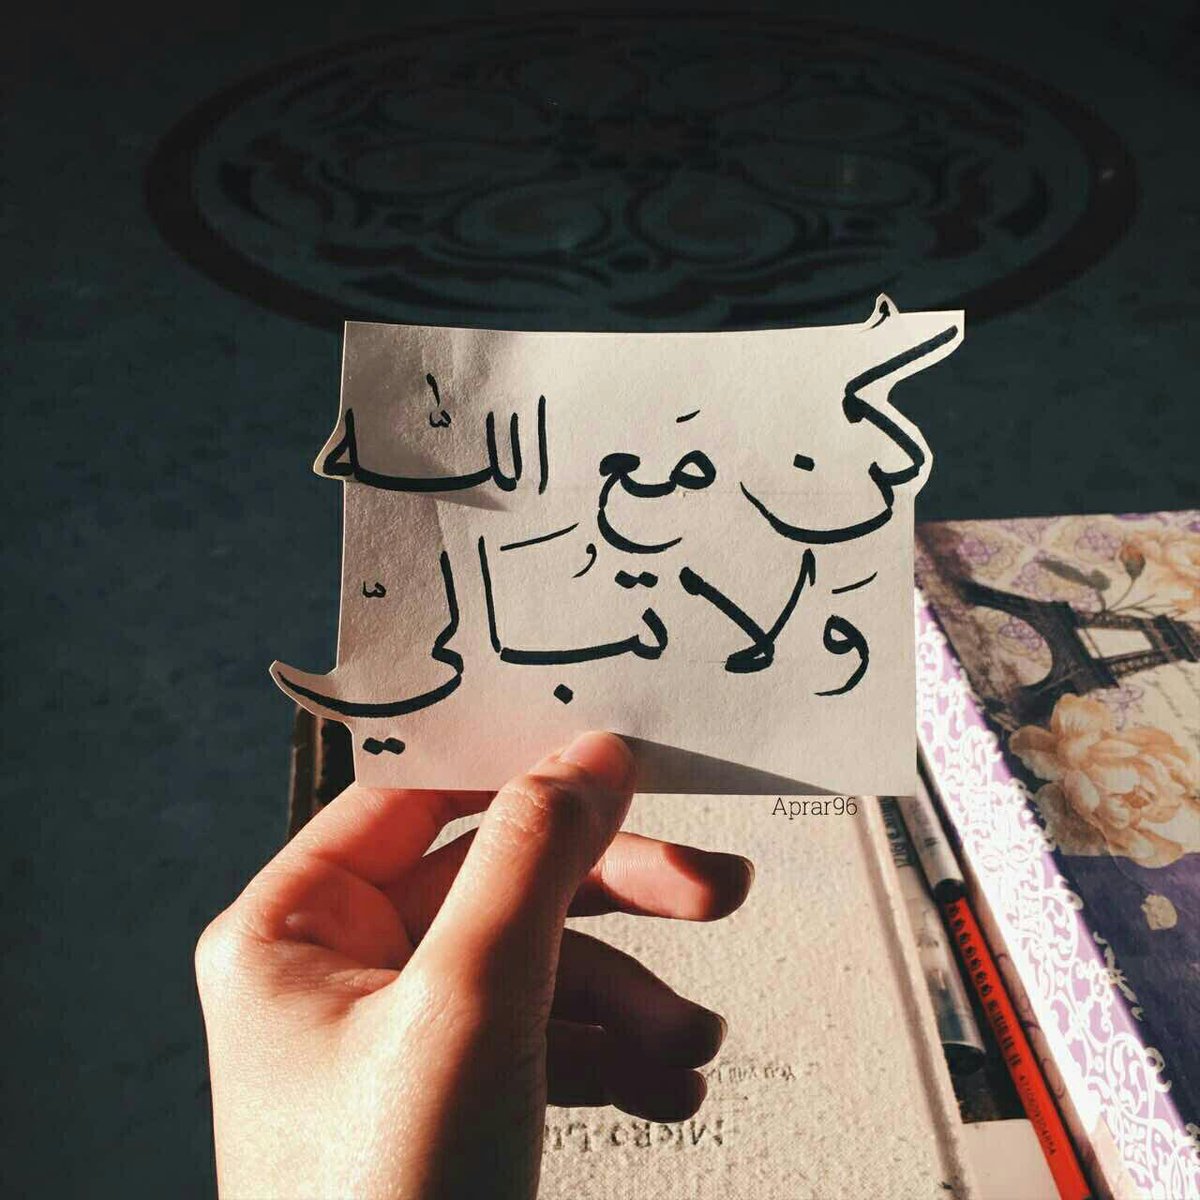 كُن مَع اللّٰه
وَلا تُبَاليّ
Aprar96